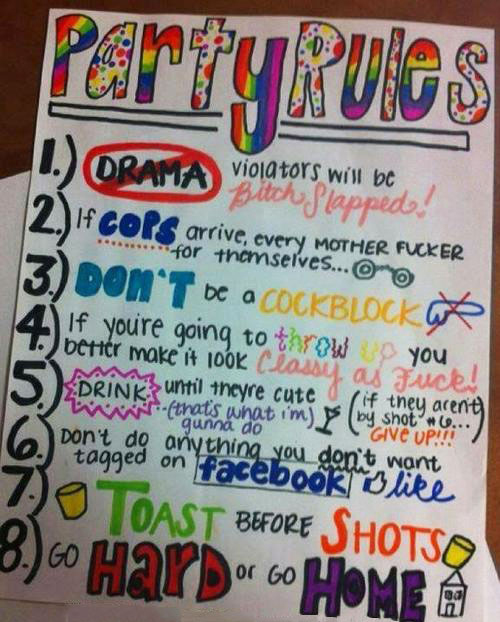 Party Rules
1.) DRAMA violators will be
Bitch Slapped!
2.) If COPS arrive, every MOTHER FUCKER
for themselves...
3.) DON'T be a COCKBLOCK
4.) If you're going to throw up you
better make it look Classy as Fuck!
5.) DRINK until theyre cute (if they aren't
..(that's what i'm) by shot #6...)
gunna do GIVE UP!!!
6.) Don't do anything you don't want
tagged on facebook like
7.) TOAST BEFORE SHOTS
8.) GO HARD or GO HOME